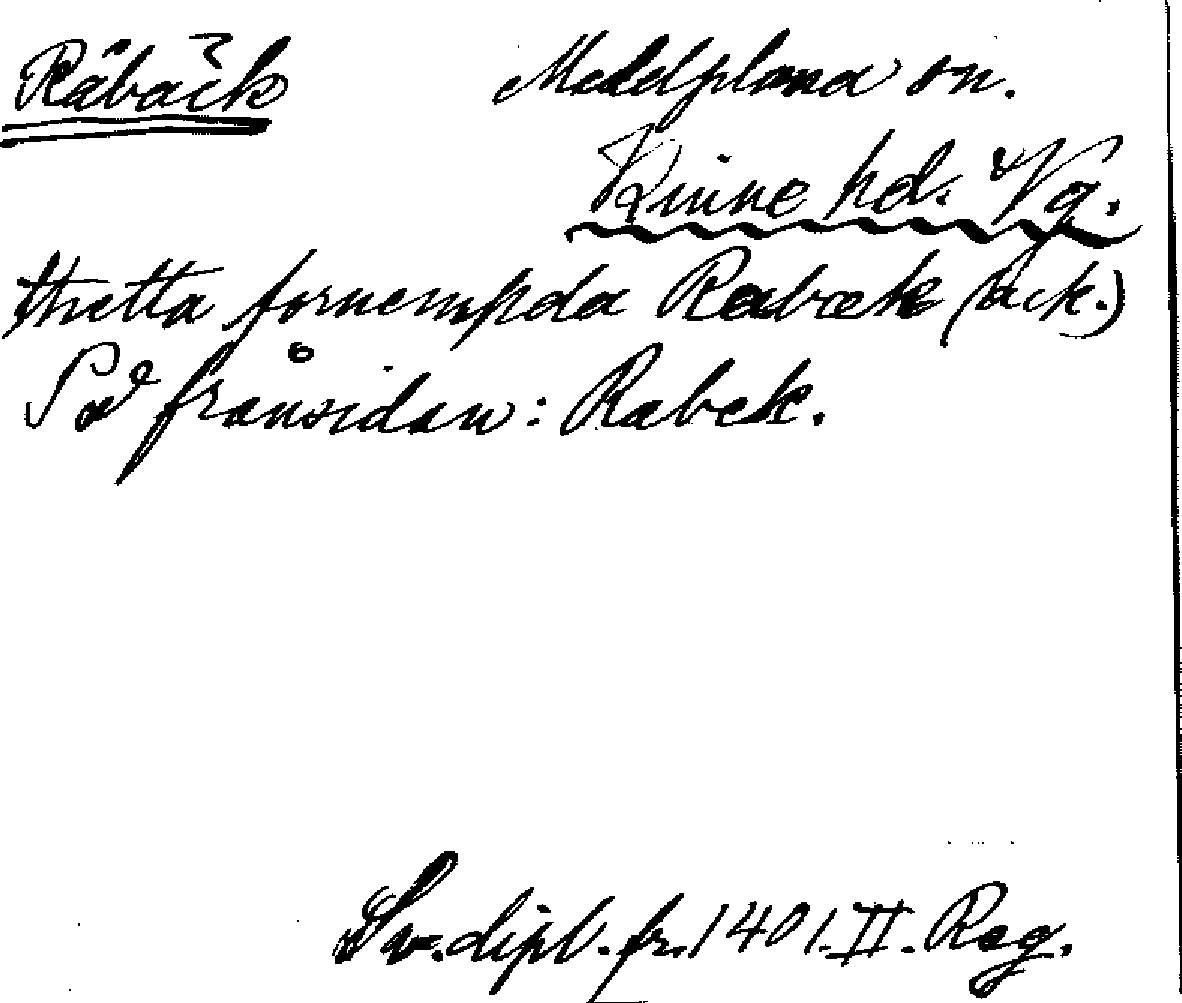 Råbäck
Medelplana sn.
Kinne hd. Vg.
thetta fornempda Rabæk (ack.)
På frånsidan: Rabek.
Sv. dipl. fr. 1401. II. Reg.